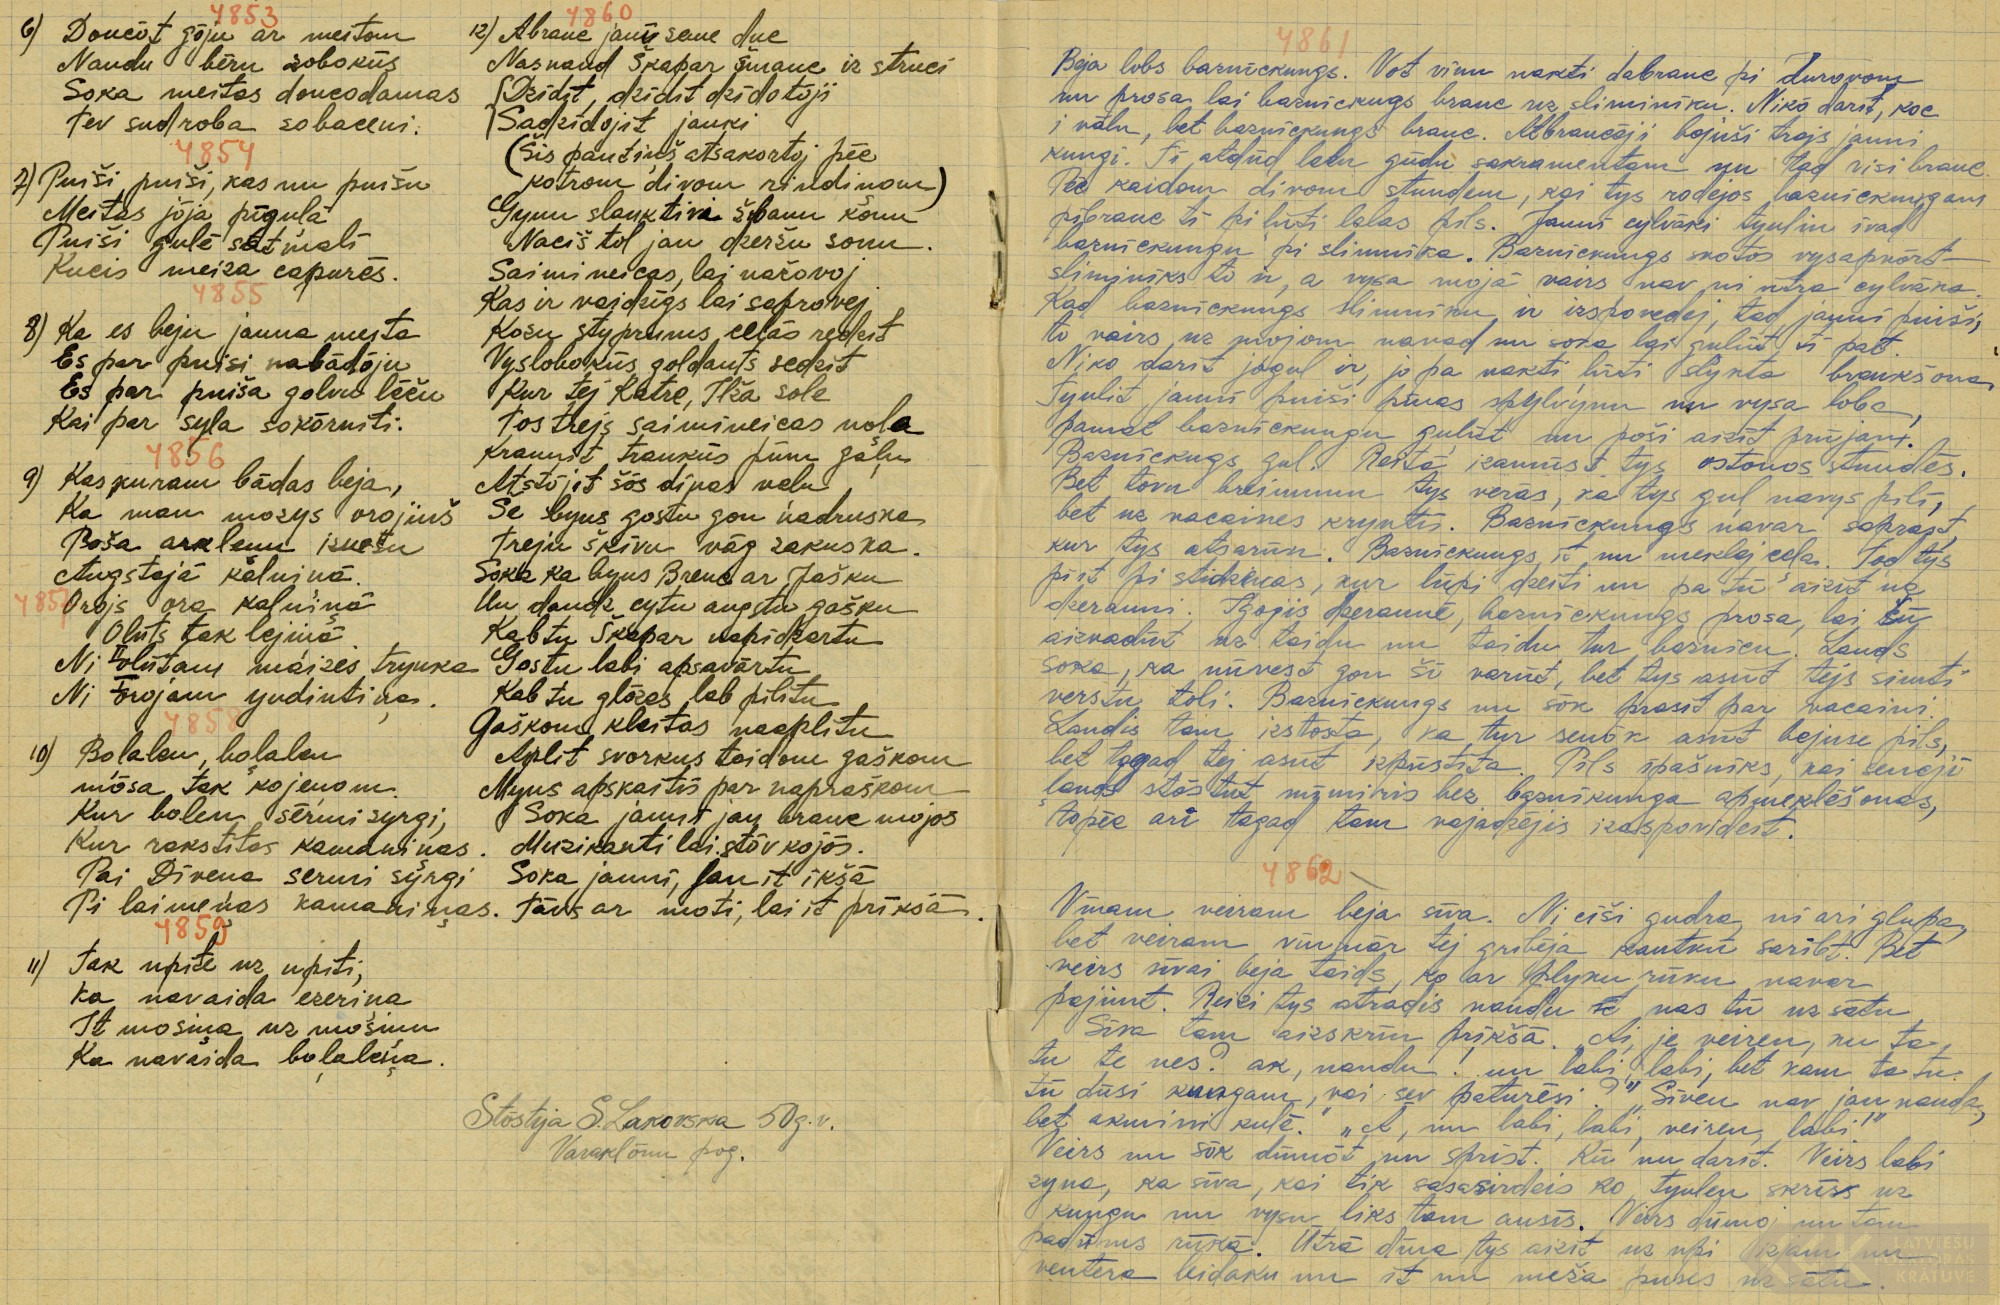 4853
6) Doncōt gōju ar meitom
Naudu bēru zobokūs
Soka meitas doncodamas
Tev sudroba zobaceni.
4854
7) Puiši, puiši, kas nu puišu
Meitas jōja pīgulā
Puiši gulē sātmalī
Kucis meiza capurēs.
4855
8) Ka es beju jauna meita
Es par puisi nabādōju
Es par puiša golvu lēču
Kai par syla sokōrneiti.
4856
9) Kas puram bādas beja,
Ka man mozys orojiņš
Poša arklenu iznešu
Augstajā kalniņā.
4857
Orojs ora kalniņā
Olūts tak lejiņā
Ni olūtam maizes trynka
Ni orojam yudintiņa.
4858
10) Bolalen, bolalen
mōsa tak kojenom.
Kur bolen sērmi zyrgi,
Kur rakstītas kamaniņas.
Pai Dīvena sermi syrgi
Pi laimeņas kamaniņas.
4859
11) Tak upīte uz upīti,
Ka navaida ezeriņa
It mosiņa uz mosiņu
Ka navaida bolaleņa.
4860
12) Abrauc jauni seue duc
Nasnaud Škapar šmauc iz struci
Dzīdit, dzīdit dzīdotōji
Sadzīdōjit jauki
(Šis pantiņš atsakortoj pēc
kotrom divom rindiņom)
Gyunu slauktivi šķbanu kōnu
Naciš tōl jau dzeržu sonu.
Saimineicas, lai nažovoj
Kas ir vajdzīgs lai saprovej
Kozu styprums ceļās redzit
Vyslobokūs goldauts sedzit
Kur tej Katre, Ilža sole
Tos trejs saimineicas vola
Kraunit traukūs pūnu gaļu
Atstōjit šōs dīnas valu
Se byus gostu gon nadruska
Treju škīvu vāg zakuska.
Soka ka byus Brenc ar Jašku
Un daudz cytu augstu gašku
Kab tu Škapar napīdzartu
Gostu labi apsavārtu
Kab tu glōzes lab pīlītu
Gaškom kleitas naaplītu
Aplit svorkus taidom gaškom
Myus apskaitīs par naprаškom
Soka jaunī jau brauc mojos
Muzikanti lai stōv kojōs.
Soka jaunī, jau it īkšā
Tāvs ar moti, lai it prīkšā.
Stōstīja S. Lakovska 50g.v.
Varaklōnu pog.
4861
Beja lobs baznīckungs. Vot vīnu nakti dabrauc pi durovom
nu prosa lai baznīckugs brauc uz sliminīku. Nikō darīt, koc
i vālu, bet baznīckungs brauc. Atbraucēji bejuši trejs jauni
kungi. Ti atdūd lobu gūdu sakramentam un tad visi brauc.
Pēc kaidom divom stundem, kai tys rodējos baznīckungam
pībrauc ti pi ļūti lelas pils. Jauni cylvāki tyuliņ īvad
baznīckungu pi slimnīka. Baznīckungs skotōs vysapkōrt—
sliminīks tō ir, a vysa mojā vairs nav ni vīna cylvāka.
Kad baznīckungs slimnīku ir izspovedej, tad jauni puiši,
to vairs uz mojom navad nu soka lai guļūt ti pat.
Niko darīt jōguļ ir, jo pa nakti ļūti slykta braukšona.
Tyulit jauni puiši pīnas spylvynu nu vysa loba,
pamat baznickungu gulūt nu poši aizīt prūjam.
Baznīckugs guļ. Reitā izamūst tys ostoņos stundēs.
Bet tovu breinumu tys verās, ka tys guļ navys pilī,
bet uz vacaines kryutīs. Baznīckungs navar saprast,
kur tys atsarūn. Baznīckungs it nu meklej ceļa. Tod tys
pīit pi stidziņas, kur lūpi dzeiti nu pa tū aizīt uz
dzeraunī. Īgojis dzeraunē, baznickungs prosa, lai šū
aizvadūt uz taidu nu taidu tur baznicu. Ļauds
soka, ka nūvest gon šū varūt, bet tys asut tejs simti
verstu toli. Baznīckungs nu sōk prasit par vacaini.
Ļaudis tam izstosta, ka tur senōk asūt bejuse pils,
bet tagad tej asut izpūstīta. Pils īpašnīks, kai senejī
ļauds stōstūt nūmiris bez baznīkunga apmeklēšonas,
tōpēc arī tagad tam vajadzējis izaspovidēt.
4862
Vīnam veiram beja sīva. Ni cīši gudra, ni ari glupa,
bet veiram vīnmār tej gribēja kautkū sarībt. Bet
veirs sīvai beja taids, ko ar plyku rūku navar
pajimt. Reizi tys atradis naudu nas tū uz sātu
Sīva tam aizskrīn prīkšā. „Ai, je veiren, nu ta,
tu te nes? ak, naudu! nu labi, labi, bet kam ta tu
tū dūsi kungam, vai sev paturēsi?" „Sīven nav jau nauda,
bet akmini kulē." „A, nu labi, labi, veiren, labi!"
Veirs nu sōk dūmōt un sprīst. Kū nu darīt. Veirs labi
zyna, ka sīva, kai tik sasasirdeis ko, tyuleņ skrīss uz
kungu nu vysu liks tam ausīs. Veirs dūmoj nu tam
padūms rūkā. Ūtrā dīna tys aizīt uz upi
ventera leidaku nu it nu meža puses uz sātu.
LATVIEŠU
FOLKLORAS
KRĀTUVE